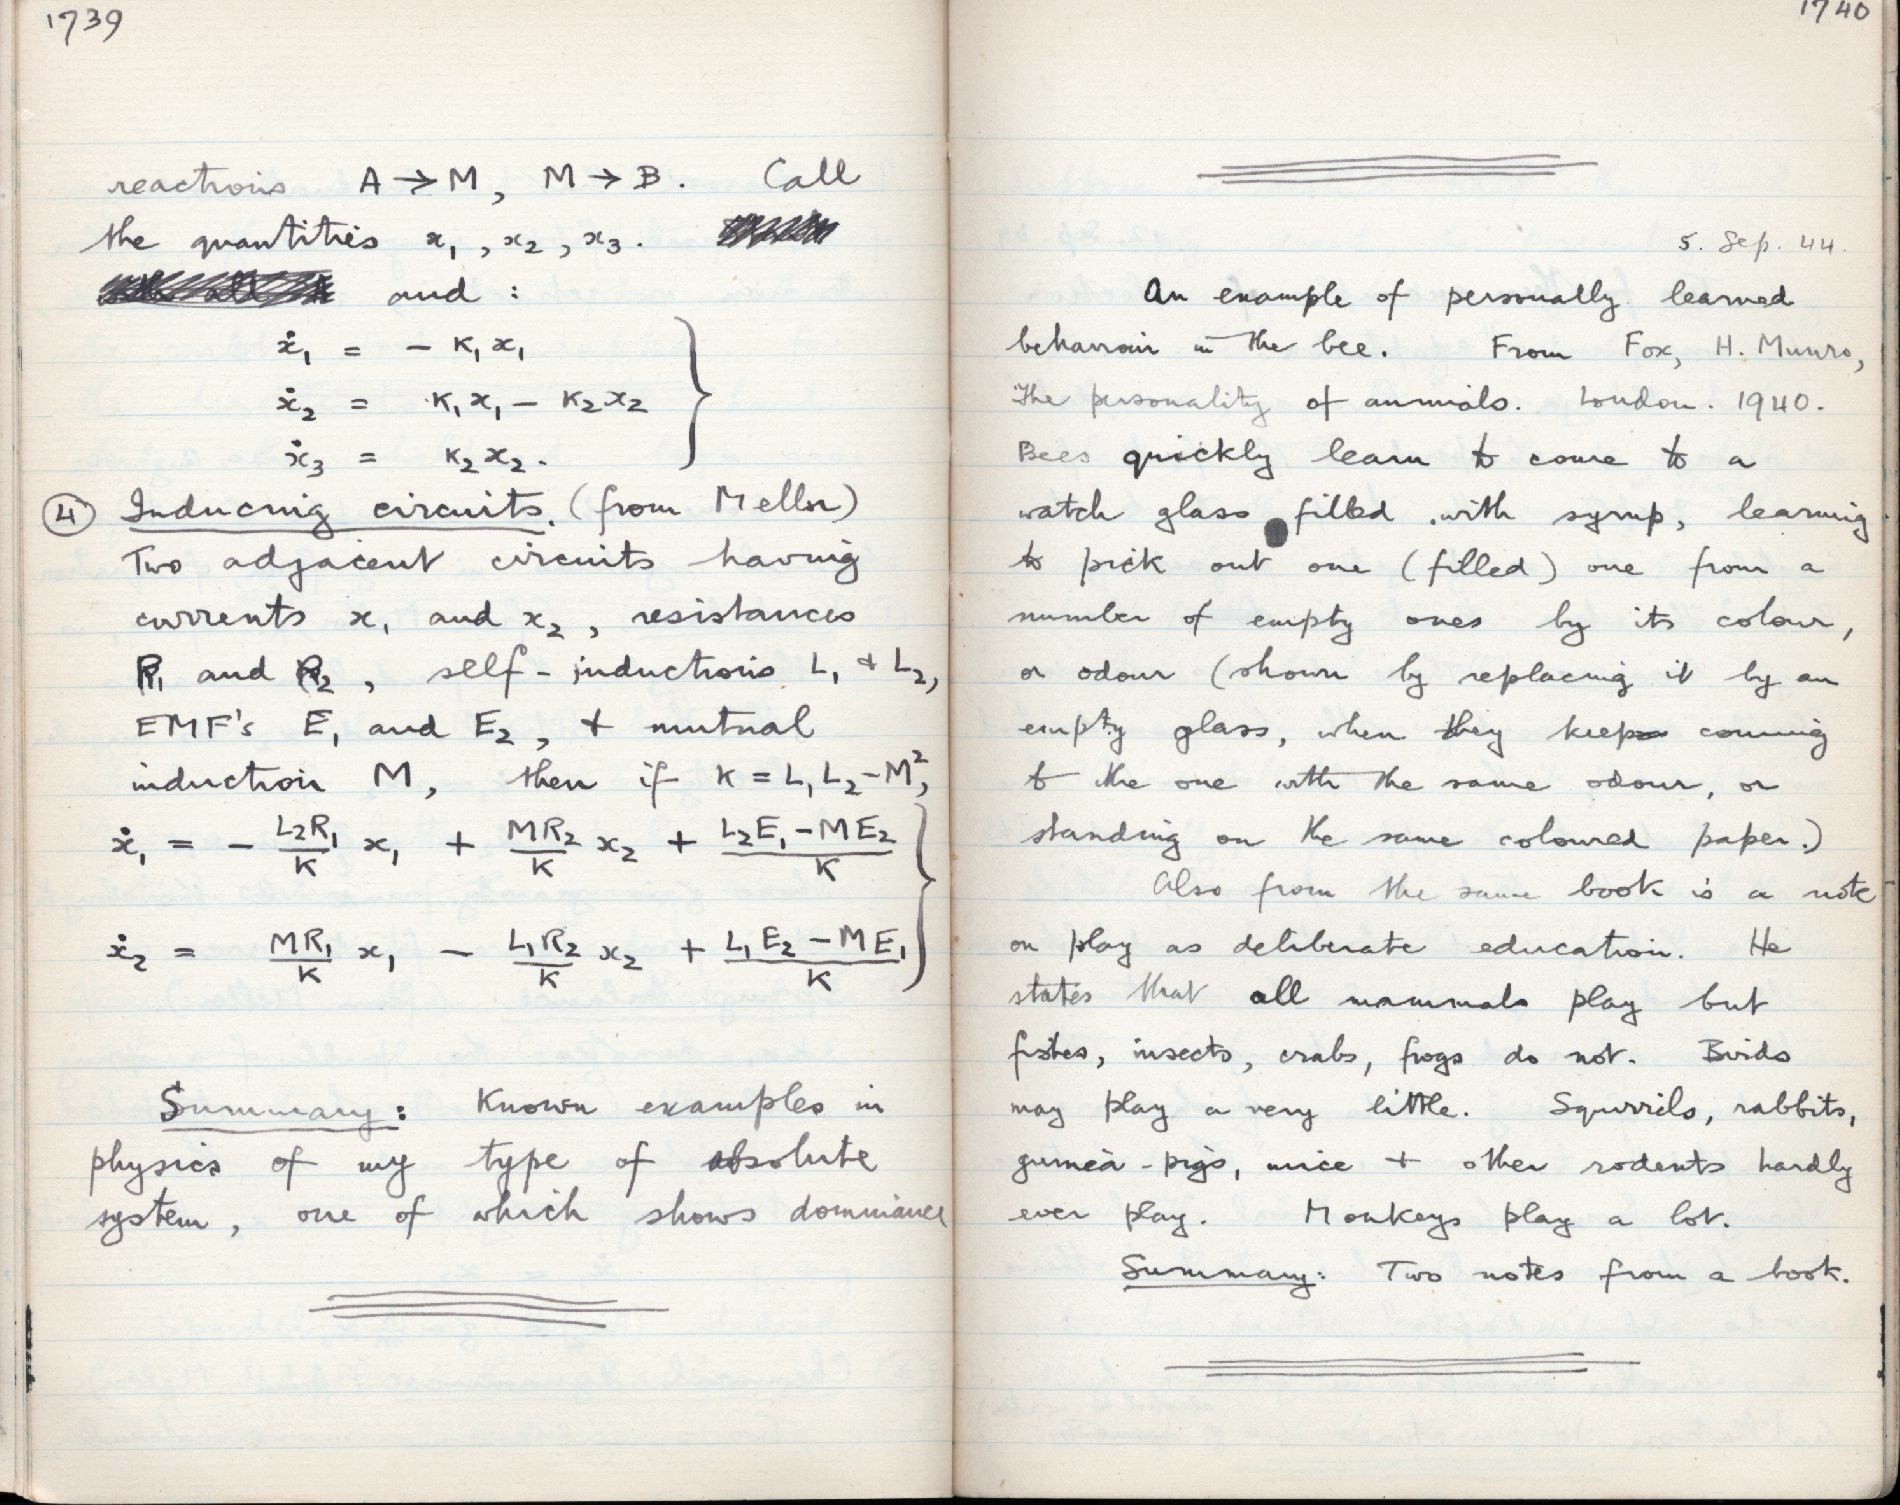 1739
reactions A → M, M → B. Call
the quantities x₁, x₂, x₃.
and :
ẋ₁ = - K₁x₁
ẋ₂ = K₁x₁ - K₂x₂
ẋ₃ = K₂x₂.
④ Inducing circuits. (from Mellor)
Two adjacent circuits having
currents x₁ and x₂, resistances
R₁ and R₂, self-inductions L₁ + L₂,
EMF's E₁ and E₂, + mutual
induction M, then if K = L₁L₂-M²,
ẋ₁ = - L₂R₁/K x₁ + MR₂/K x₂ + (L₂E₁-ME₂)/K
ẋ₂ = MR₁/K x₁ - L₁R₂/K x₂ + (L₁E₂-ME₁)/K
Summary: Known examples in
physics of my type of absolute
system, one of which shows dominance
1740
5. Sep. 44.
An example of personally learned
behaviour in the bee. From Fox, H. Munro,
The personality of animals. London. 1940.
Bees quickly learn to come to a
watch glass filled with syrup, learning
to pick out one (filled) one from a
number of empty ones by its colour,
or odour (shown by replacing it by an
empty glass, when they keep coming
to the one with the same odour, or
standing on the same coloured paper.)
Also from the same book is a note
on play as deliberate education. He
states that all mammals play but
fishes, insects, crabs, frogs do not. Birds
may play a very little. Squirrels, rabbits,
guinea-pigs, mice + other rodents hardly
ever play. Monkeys play a lot.
Summary: Two notes from a book.